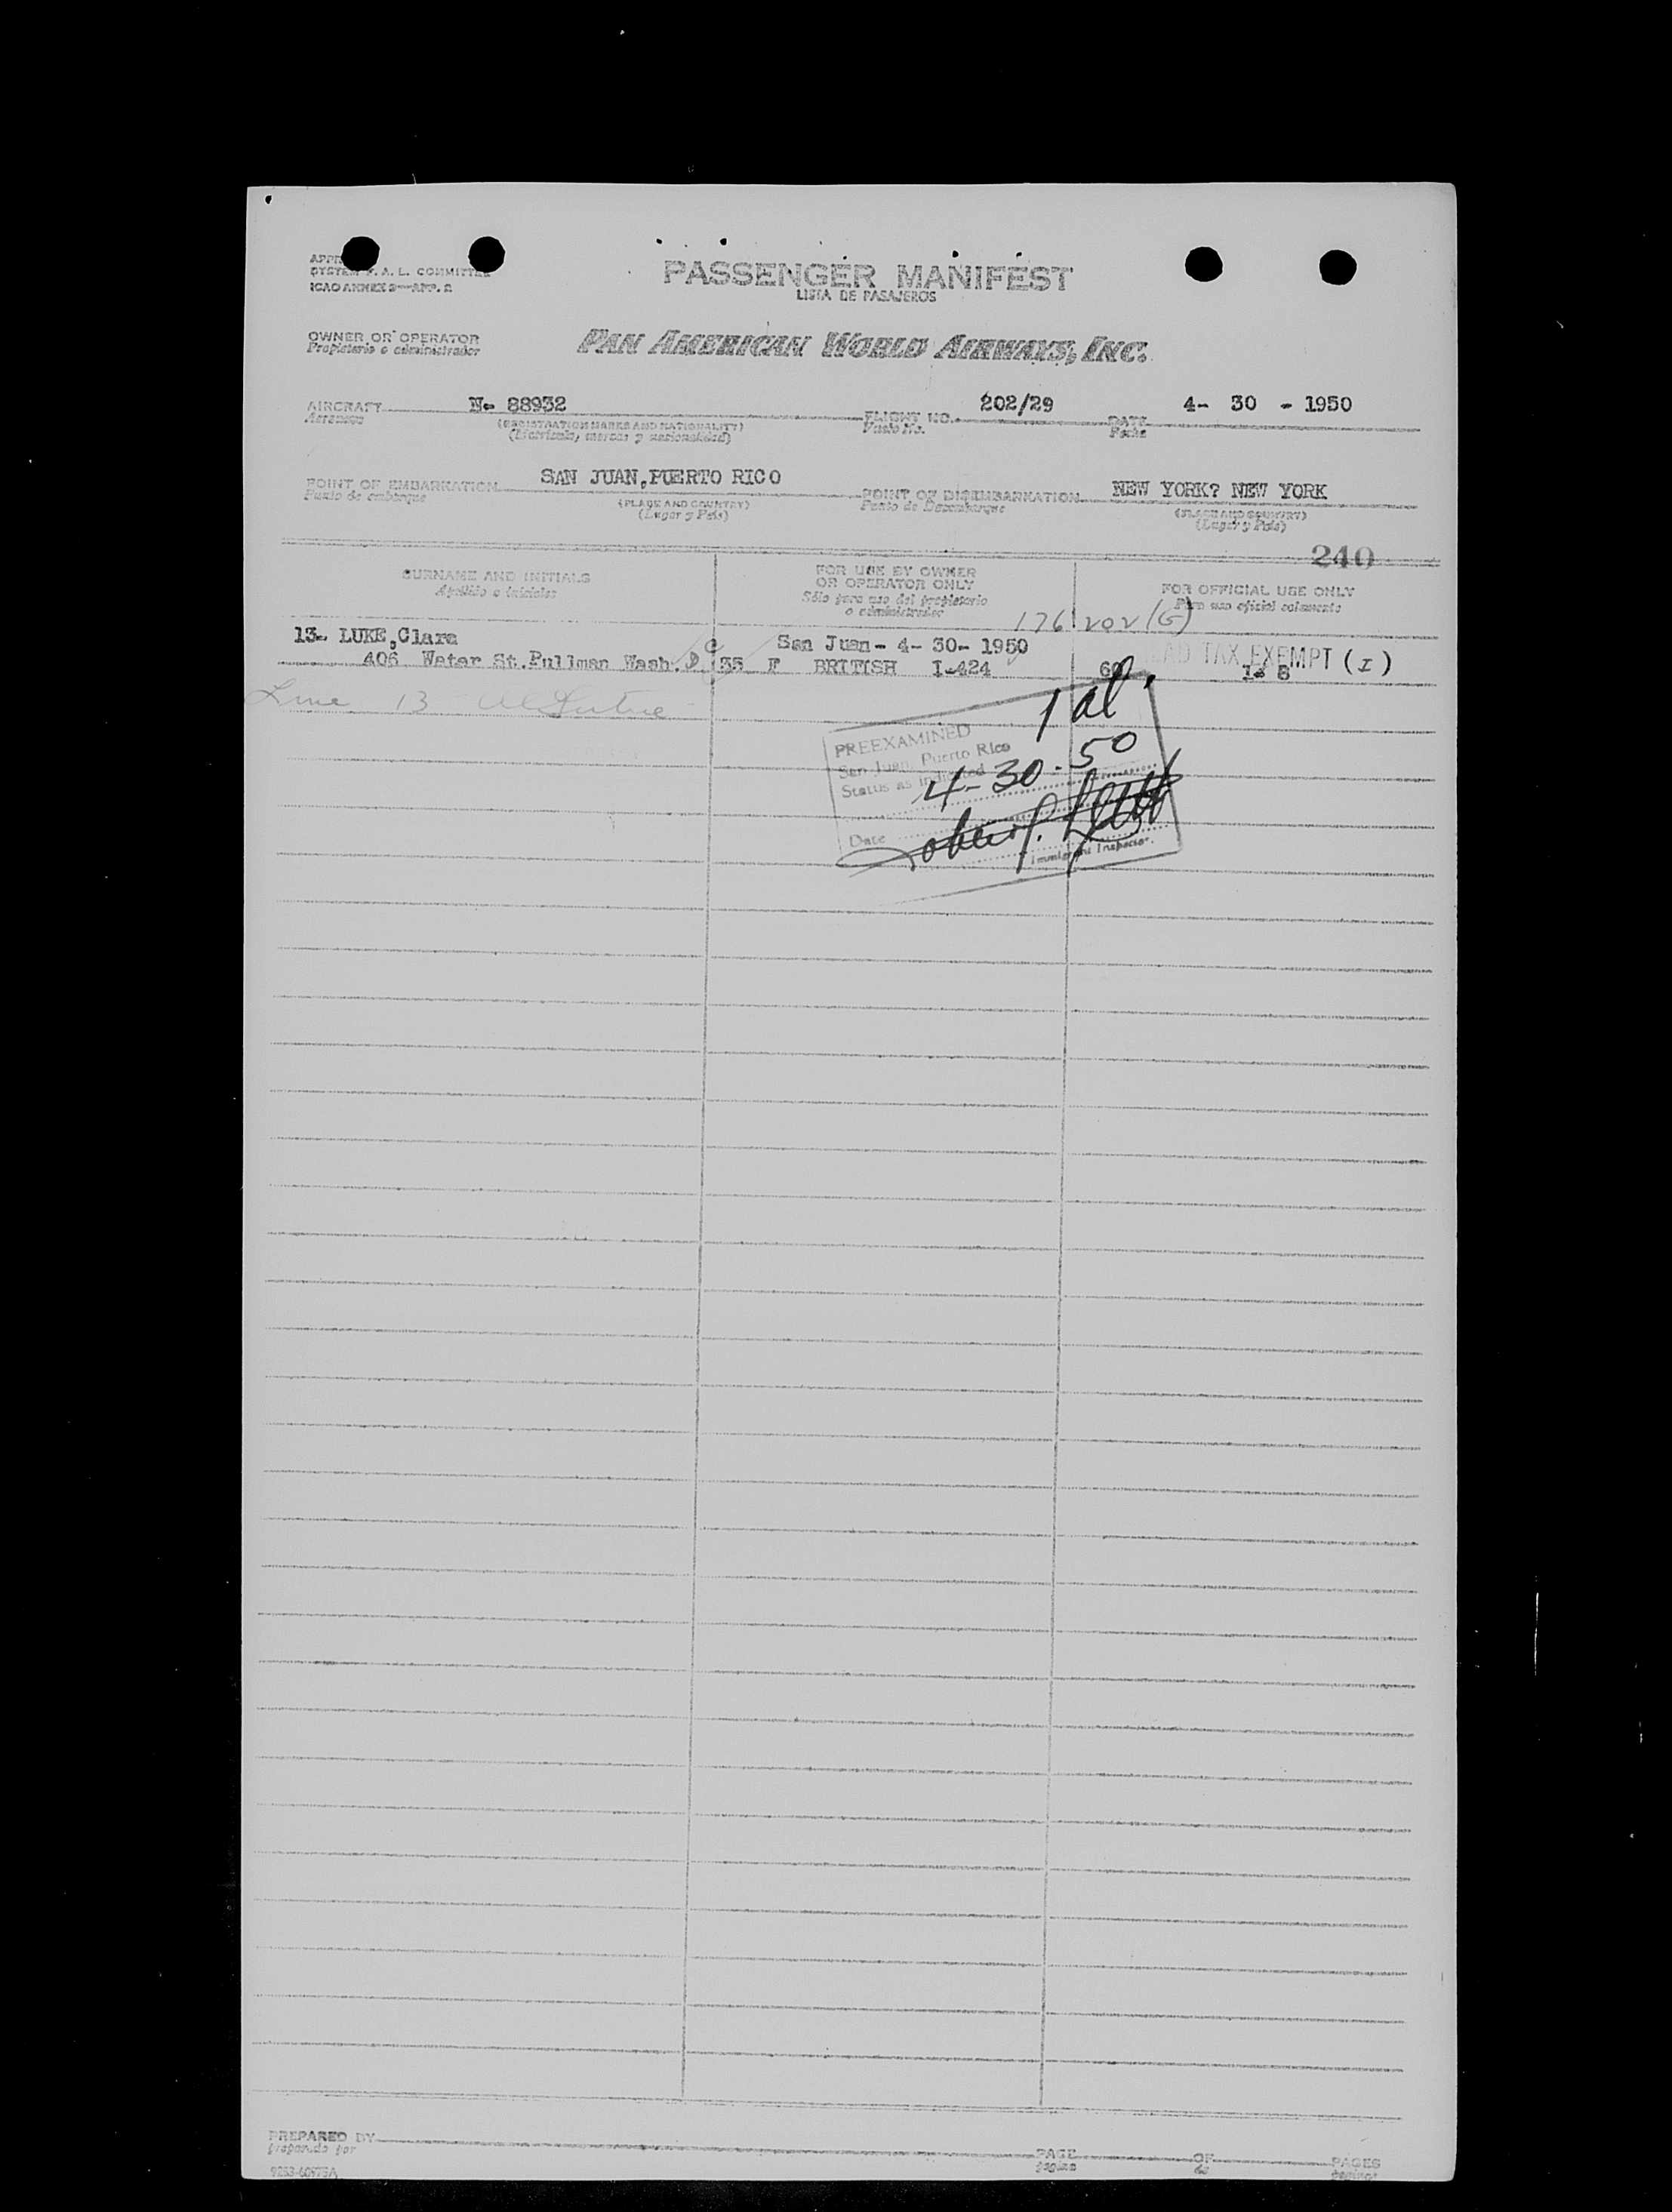 SYSTEM F. A. L. COMMITTEE
ICAO ANNEX 9—APP.
PASSENGER MANIFEST
LISTA DE PASAJEROS
OWNER OR OPERATOR
Propietario o administrador
PAN AMERICAN WORLD AIRWAYS, INC.
AIRCRAFT N- 88932 FLIGHT NO. 202/29 DATE 4- 30 - 1950
Aeronave (REGISTRATION MARKS AND NATIONALITY) Vuelo No. Fecha
(Matricula, marcas y nacionalidad)
POINT OF EMBARKATION SAN JUAN,PUERTO RICO POINT OF DISEMBARKATION NEW YORK? NEW YORK
Punto de embarque (PLACE AND COUNTRY) Punto de Desembarque (PLACE AND COUNTRY)
(Lugar y País) (Lugar y País)
240
SURNAME AND INITIALS
Apellido e iniciales
FOR USE BY OWNER
OR OPERATOR ONLY
Sólo para uso del propietario
o administrador
FOR OFFICIAL USE ONLY
Para uso oficial solamente
176 (G)
13- LUKE,Clara San Juan- 4- 30- 1950
406 Water St.Pullman Wash. D C 35 F BRITISH I-424
TAX EXEMPT (I)
Line 13
1 al.
PREEXAMINED
San Juan, Puerto Rico
Status as indicated
4-30-50
Date
Immigrant Inspector.
PREPARED BY PAGE OF PAGES
preparado por página de páginas